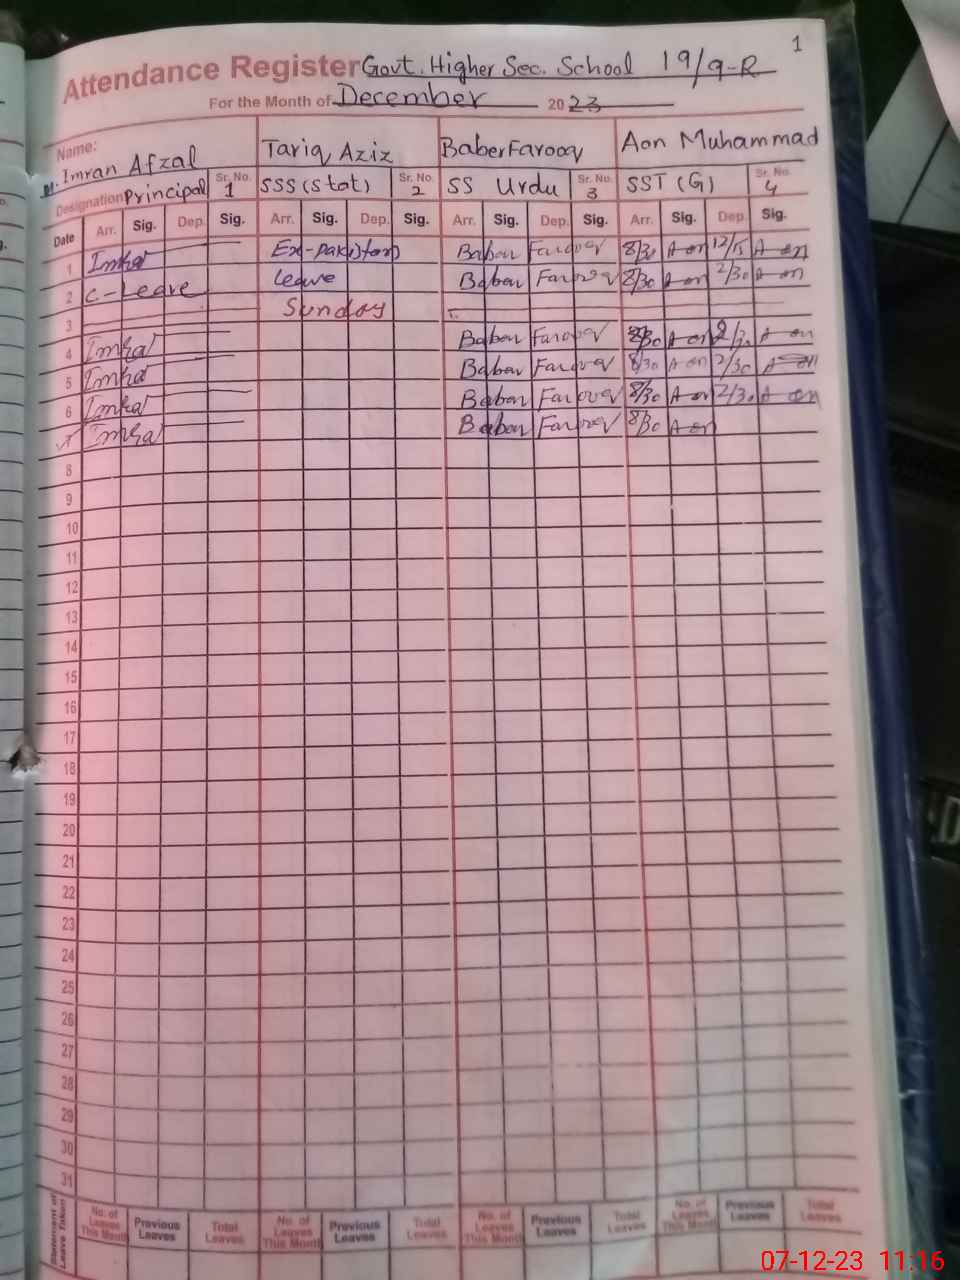 1
Attendance Register Govt. Higher Sec. School 19/9-R
For the Month of December 2023
Name: M. Imran Afzal Tariq Aziz Baber Farooq Aon Muhammad
Designation Principal Sr. No. 1 SSS (Stat) Sr. No. 2 SS Urdu Sr. No. 3 SST (G) Sr. No. 4
Date Arr. Sig. Dep. Sig. Arr. Sig. Dep. Sig. Arr. Sig. Dep. Sig. Arr. Sig. Dep. Sig.
1 Ex-Pakistan Baber Farooq 8/30 Aon 12/15 Aon
2 C-Leave Leave Baber Farooq 8/30 Aon 2/30 Aon
3 Sunday
4 Baber Farooq 8/30 Aon 2/30 Aon
5 Baber Farooq 8/30 Aon 2/30 Aon
6 Baber Farooq 8/30 Aon 2/30 Aon
7 Baber Farooq 8/30 Aon
8
9
10
11
12
13
14
15
16
17
18
19
20
21
22
23
24
25
26
27
28
29
30
31
Statement of Leave Taken No. of Leaves This Month Previous Leaves Total Leaves No. of Leaves This Month Previous Leaves Total Leaves No. of Leaves This Month Previous Leaves Total Leaves No. of Leaves This Month Previous Leaves Total Leaves
07-12-23 11:16